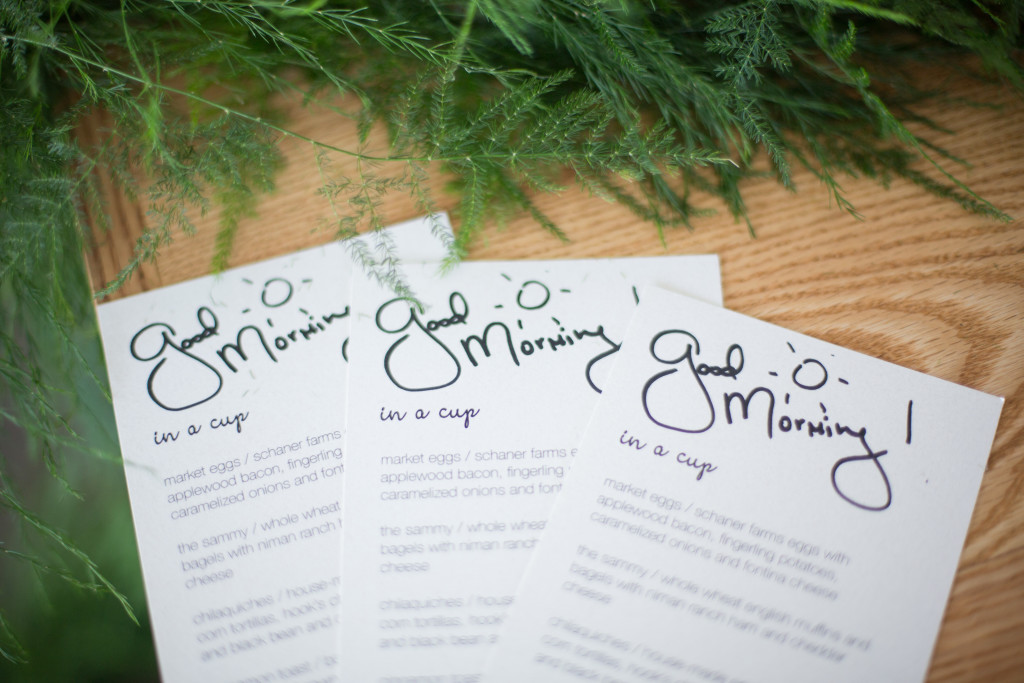 Good Morning
in a cup
market eggs / schaner farms
applewood bacon, fingerling
caramelized onions and font
the sammy / whole wheat
bagels with niman ranch h
cheese
chilaquiches / house-m
corn tortillas, hook's c
and black bean and
Good Morning
in a cup
market eggs / schaner farms e
applewood bacon, fingerling
caramelized onions and font
the sammy / whole wheat
bagels with niman ranch
cheese
chilaquiches / house
corn tortillas, hook
and black bean a
Good Morning!
in a cup
market eggs / schaner farms eggs with
applewood bacon, fingerling potatoes,
caramelized onions and fontina cheese
the sammy / whole wheat english muffins and
bagels with niman ranch ham and cheddar
cheese
chilaquiches / house-made
corn tortillas, hook's
and black bean